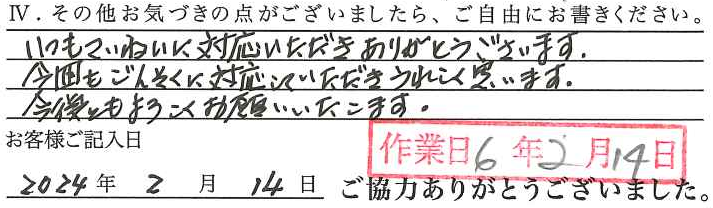 Ⅳ．その他お気づきの点がございましたら、ご自由にお書きください。
いつもていねいに対応いただきありがとうございます．
今回もごんそくに対応していただきうれしく思います．
今後ともよろしくお願いいたします．
お客様ご記入日
作業日6年2月14日
2024年 2 月 14 日 ご協力ありがとうございました。